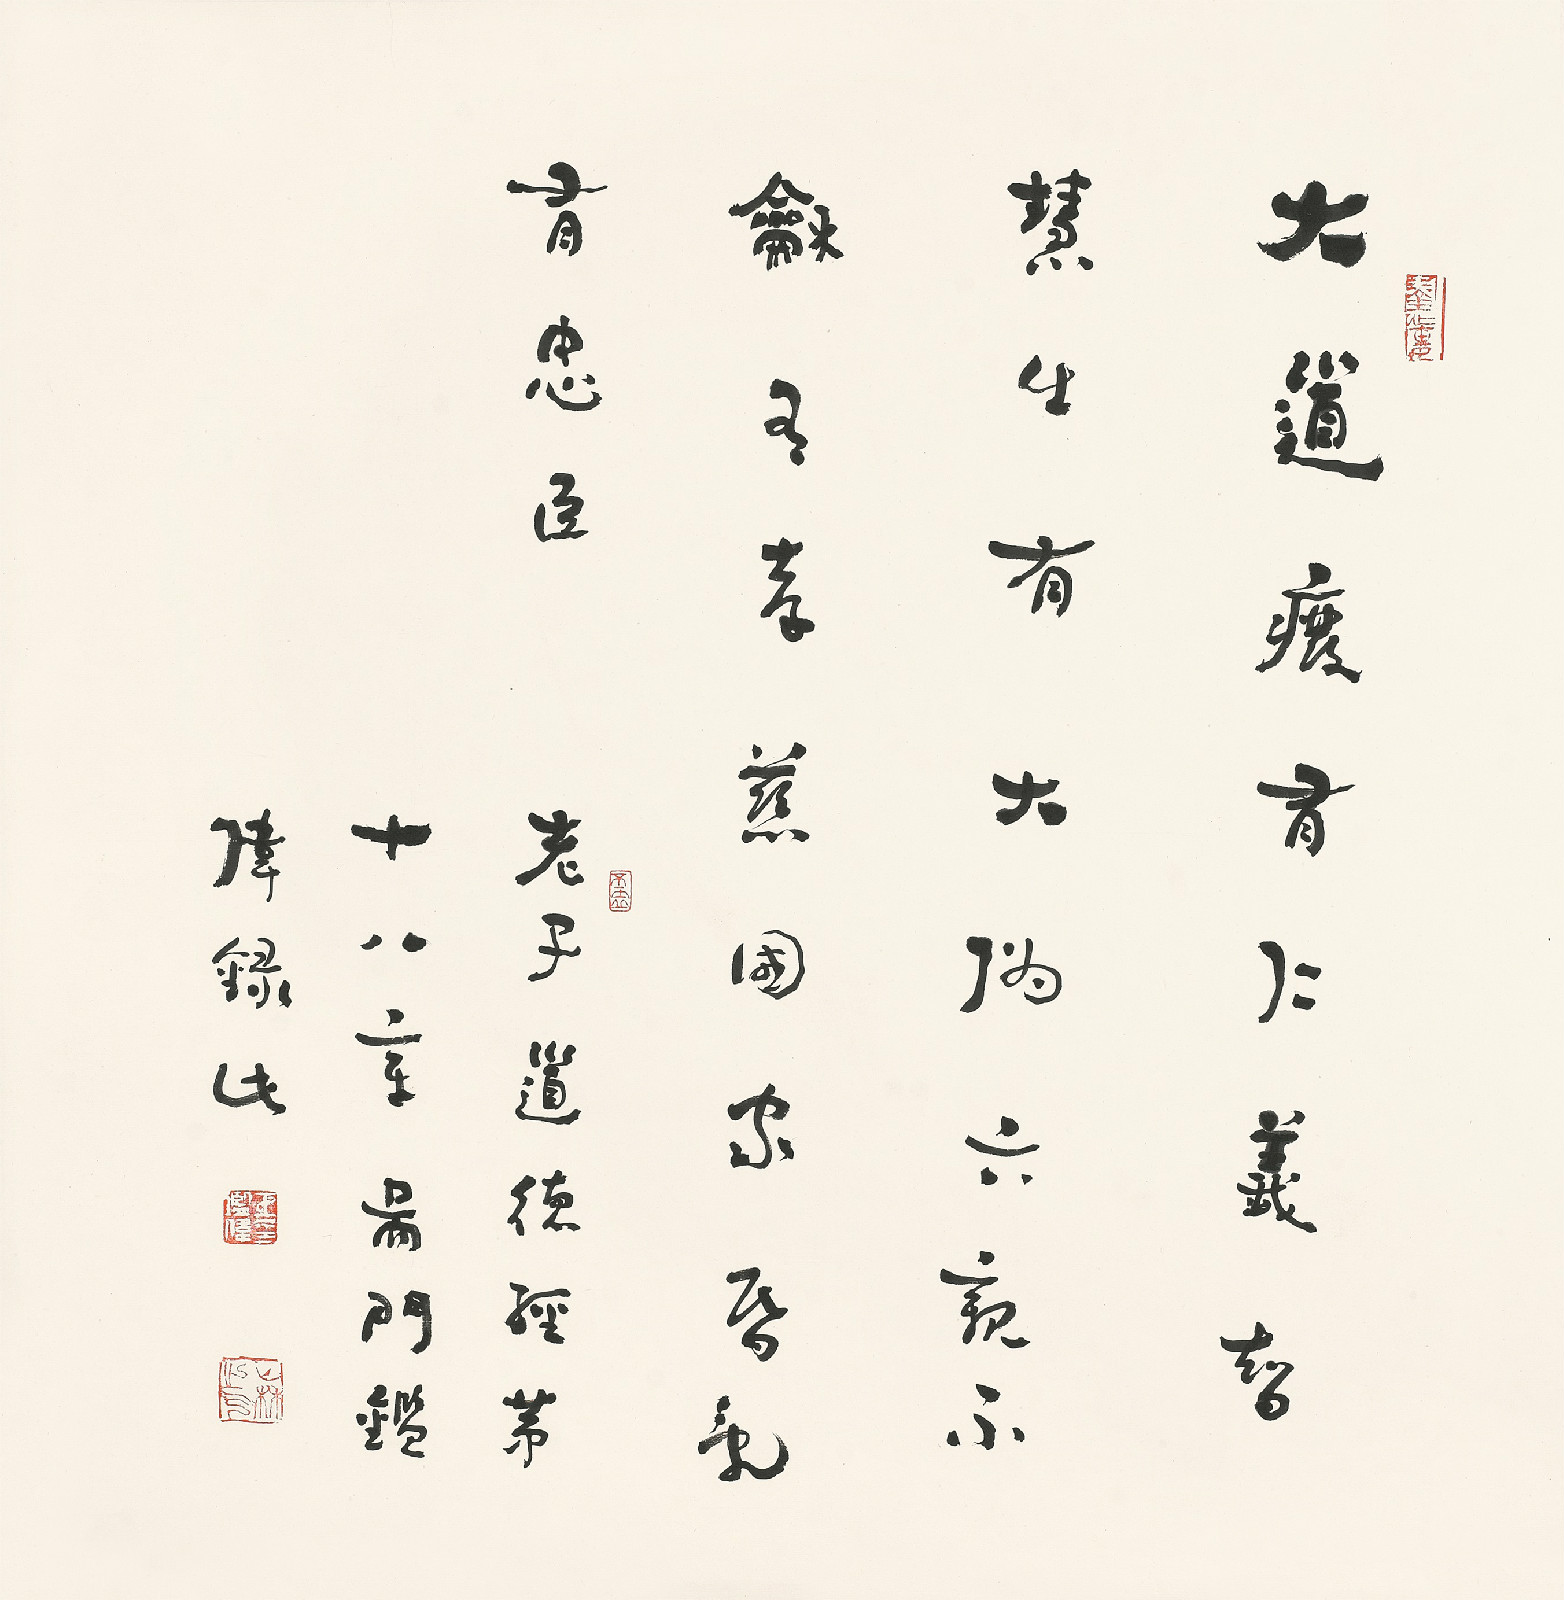 大道廢有仁義智
慧生有大偽六親不
龢有孝慈國家昏亂
有忠臣
老子道德經第
十八章吳門鑑
偉録此